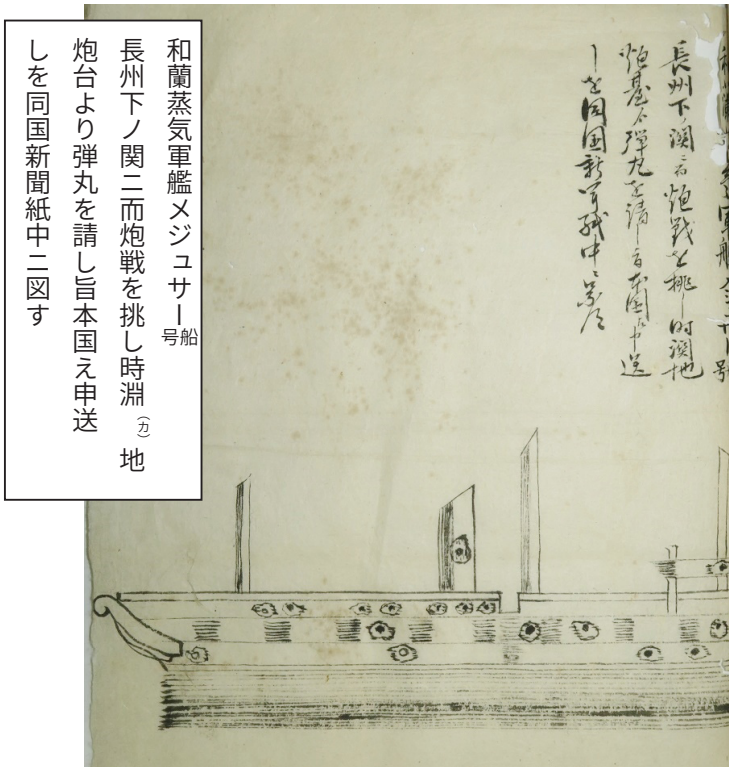 和蘭蒸気軍艦メジュサー船号
長州下ノ関ニ而炮戦を挑し時淵(カ)地
炮台より弾丸を請し旨本国え申送
しを同国新聞紙中ニ図す
長州下ノ関ニ而炮戦を挑し時淵地
炮臺より弾丸を請し旨本国え申送
しを同国新聞紙中ニ図す